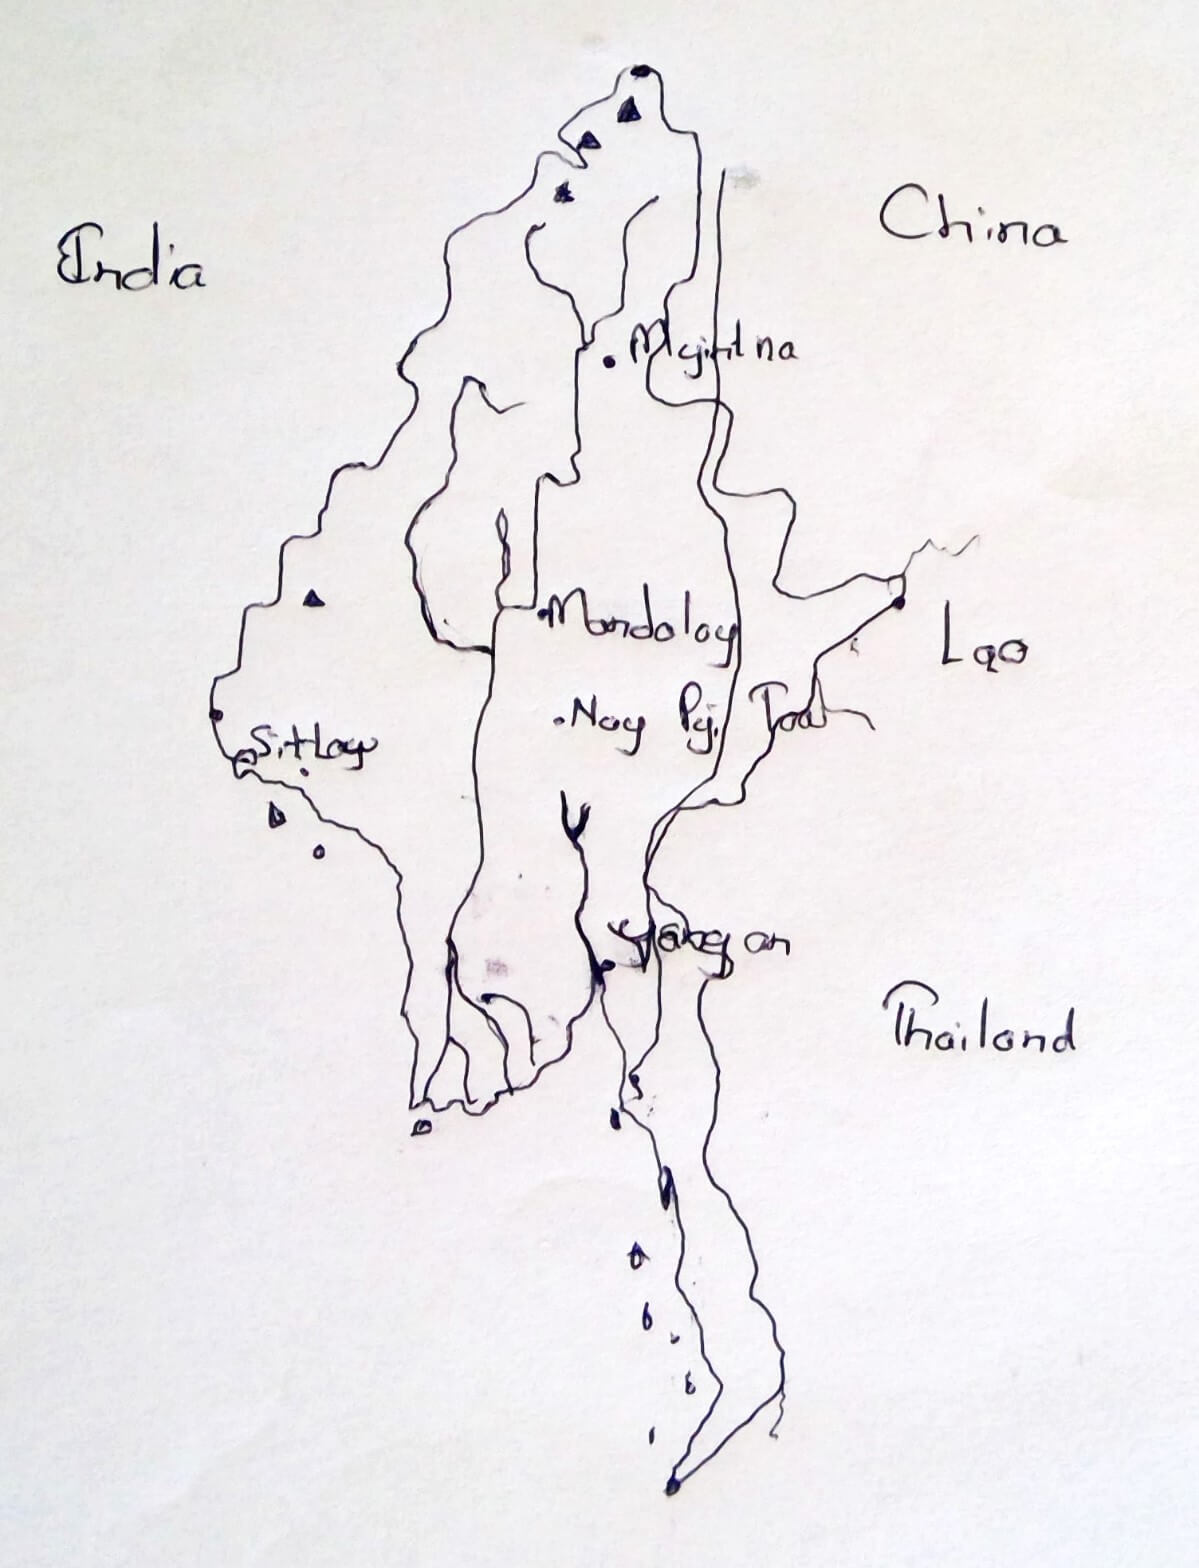 China
India
Myitna
Mandalay
Lao
Nay Pyi Taw
Sittay
Yangon
Thailand